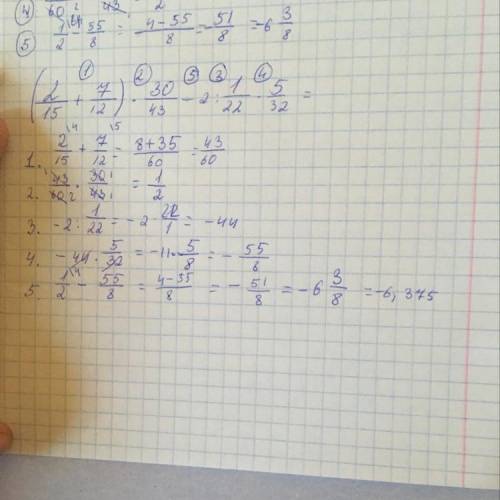 ④ 60 2 43 2
⑤ 1/2 - 55/8 = 4-55/8 = -51/8 = -6 3/8
① ② ⑤ ③ ④
(2/15 + 7/12) · 30/43 - 2 : 1/22 · 5/32 =
1. 2/15 \4 + 7/12 \5 = 8+35/60 = 43/60
2. 43/60 · 30/43 = 1/2
3. -2 : 1/22 = -2 · 22/1 = -44
4. -44 · 5/32 = -11 · 5/8 = -55/8
5. 1/2 \4 - 55/8 = 4-55/8 = -51/8 = -6 3/8 = -6,375